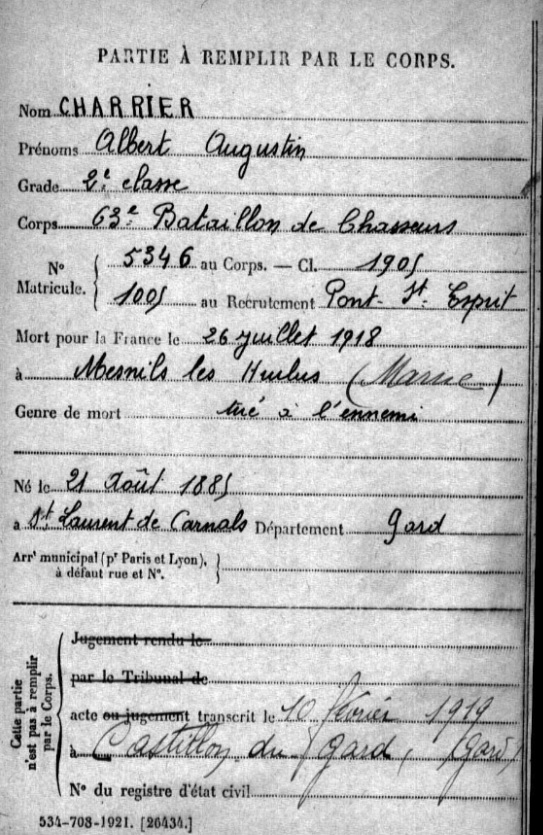 PARTIE À REMPLIR PAR LE CORPS.
Nom CHARRIER
Prénoms Albert Augustin
Grade 2e classe
Corps 63e Bataillon de Chasseurs
N° Matricule. { 5346 au Corps. — Cl. 1905
1005 au Recrutement Pont-St-Esprit
Mort pour la France le 26 juillet 1918
à Mesnils les Hurlus (Marne)
Genre de mort tué à l'ennemi
Né le 21 Août 1885
à St Laurent de Carnols Département Gard
Arrt municipal (pr Paris et Lyon),
à défaut rue et N°.
Cette partie n'est pas à remplir par le Corps.
Jugement rendu le
par le Tribunal de
acte ou jugement transcrit le 10 février 1919
à Castillon du Gard, (Gard)
N° du registre d'état civil
534-708-1921. [26434.]